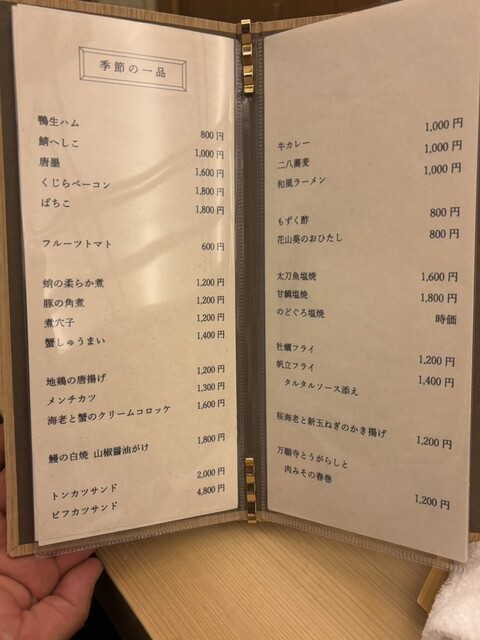 季節の一品
鴨生ハム 800円
鯖へしこ 1,000円
唐墨 1,600円
くじらベーコン 1,800円
ばちこ 1,800円
フルーツトマト 600円
蛸の柔らか煮 1,200円
豚の角煮 1,200円
煮穴子 1,200円
蟹しゅうまい 1,400円
地鶏の唐揚げ 1,200円
メンチカツ 1,300円
海老と蟹のクリームコロッケ 1,600円
鰻の白焼 山椒醤油がけ 1,800円
トンカツサンド 2,000円
ビフカツサンド 4,800円
牛カレー 1,000円
二八蕎麦 1,000円
和風ラーメン 1,000円
もずく酢 800円
花山葵のおひたし 800円
太刀魚塩焼 1,600円
甘鯛塩焼 1,800円
のどぐろ塩焼 時価
牡蠣フライ 1,200円
帆立フライ 1,400円
タルタルソース添え
桜海老と新玉ねぎのかき揚げ 1,200円
万願寺とうがらしと
肉みその春巻 1,200円